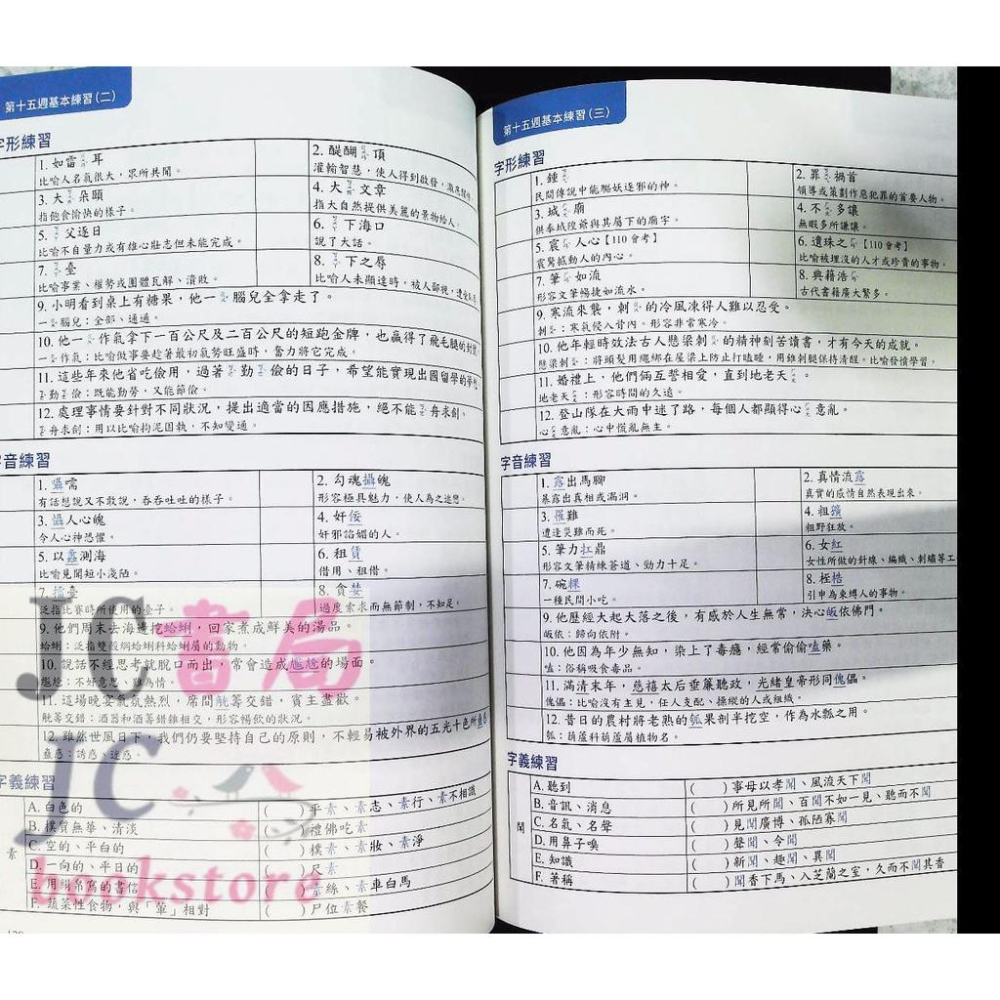 第十五週基本練習(二)
字形練習
1. 如雷 耳
比喻人名氣很大，眾所共聞。
2. 醍醐 頂
灌輸智慧，使人得到啟發，
3. 大 朵頤
指飽食愉快的樣子。
4. 大 文章
指大自然提供美麗的景物給人。
5. 父逐日
比喻不自量力或有雄心壯志但未能完成。
6. 下海口
說了大話。
7. 臺
比喻事業、權勢或團體瓦解、潰敗。
8. 下之辱
比喻人未顯達時，被人鄙視，遭受
9. 小明看到桌上有糖果，他一 腦兒全拿走了。
一 腦兒：全部、通通。
10. 他一 作氣拿下一百公尺及二百公尺的短跑金牌，也贏得了飛毛腿的封號。
一 作氣：比喻做事要趁著最初氣勢旺盛時，奮力將它完成。
11. 這些年來他省吃儉用，過著 勤 儉的日子，希望能實現出國留學的夢想。
勤 儉：既能勤勞，又能節儉。
12. 處理事情要針對不同狀況，提出適當的因應措施，絕不能 舟求劍。
舟求劍：用以比喻拘泥固執，不知變通。
字音練習
1. 囁嚅
有話想說又不敢說，吞吞吐吐的樣子。
2. 勾魂攝魄
形容極具魅力，使人為之迷戀。
3. 懾人心魄
令人心神恐懼。
4. 奸佞
奸邪諂媚的人。
5. 以蠡測海
比喻見聞短小淺陋。
6. 租賃
借用、租借。
7. 擂臺
泛指比賽時所使用的臺子。
8. 貪婪
過度索求而無節制，不知足。
9. 他們周末去海邊挖蛤蜊，回家煮成鮮美的湯品。
蛤蜊：泛指雙殼綱蛤蜊科蛤蜊屬的動物。
10. 說話不經思考就脫口而出，常會造成尷尬的場面。
尷尬：不好意思、難為情。
11. 這場晚宴氣氛熱烈，席間觥籌交錯，賓主盡歡。
觥籌交錯：酒器和酒籌錯雜相交，形容暢飲的狀況。
12. 雖然世風日下，我們仍要堅持自己的原則，不輕易被外界的五光十色所蠱惑
蠱惑：誘惑、迷惑。
字義練習
素
A. 白色的
B. 樸質無華、清淡
C. 空的、平白的
D. 一向的、平日的
E. 用絹帛寫的書信
F. 蔬菜性食物，與「葷」相對
( )平素、素志、素行、素不相識
( )禮佛吃素
( )樸素、素妝、素淨
( )尺素
( )素絲、素車白馬
( )尸位素餐
JC書局
JC
bookstore
第十五週基本練習(三)
字形練習
1. 鍾
民間傳說中能驅妖逐邪的神。
2. 罪 禍首
領導或策劃作惡犯罪的首要人物。
3. 城 廟
供奉城隍爺與其屬下的廟宇。
4. 不 多讓
無暇多所謙讓。
5. 震 人心【110會考】
震驚撼動人的內心。
6. 遺珠之 【110會考】
比喻被埋沒的人才或珍貴的事物。
7. 筆 如流
形容文筆暢捷如流水。
8. 典籍浩
古代書籍廣大繁多。
9. 寒流來襲，刺 的冷風凍得人難以忍受。
刺 ：寒氣侵入背內。形容非常寒冷。
10. 他年輕時效法古人懸梁刺 的精神刻苦讀書，才有今天的成就。
懸梁刺 ：將頭髮用繩綁在屋梁上防止打瞌睡，用錐刺腿保持清醒。比喻發憤學習。
11. 婚禮上，他們倆互誓相愛，直到地老天 。
地老天 ：形容時間的久遠。
12. 登山隊在大雨中迷了路，每個人都顯得心 意亂。
心 意亂：心中慌亂無主。
字音練習
1. 露出馬腳
暴露出真相或漏洞。
2. 真情流露
真實的感情自然表現出來。
3. 罹難
遭逢災難而死。
4. 粗獷
粗野狂放。
5. 筆力扛鼎
形容文筆精練蒼遒、勁力十足。
6. 女紅
女性所做的針線、編織、刺繡等工
7. 碗粿
一種民間小吃。
8. 桎梏
引申為束縛人的事物。
9. 他歷經大起大落之後，有感於人生無常，決心皈依佛門。
皈依：歸向依附。
10. 他因為年少無知，染上了毒癮，經常偷偷嗑藥。
嗑：俗稱吸食毒品。
11. 滿清末年，慈禧太后垂簾聽政，光緒皇帝形同傀儡。
傀儡：比喻沒有主見，任人支配、操縱的人或組織。
12. 昔日的農村將老熟的瓠果剖半挖空，作為水瓢之用。
瓠：葫蘆科葫蘆屬植物名。
字義練習
聞
A. 聽到
B. 音訊、消息
C. 名氣、名聲
D. 用鼻子嗅
E. 知識
F. 著稱
( )事母以孝聞、風流天下聞
( )所見所聞、百聞不如一見、聽而不聞
( )見聞廣博、孤陋寡聞
( )聲聞、令聞
( )新聞、趣聞、異聞
( )聞香下馬、入芝蘭之室，久而不聞其香